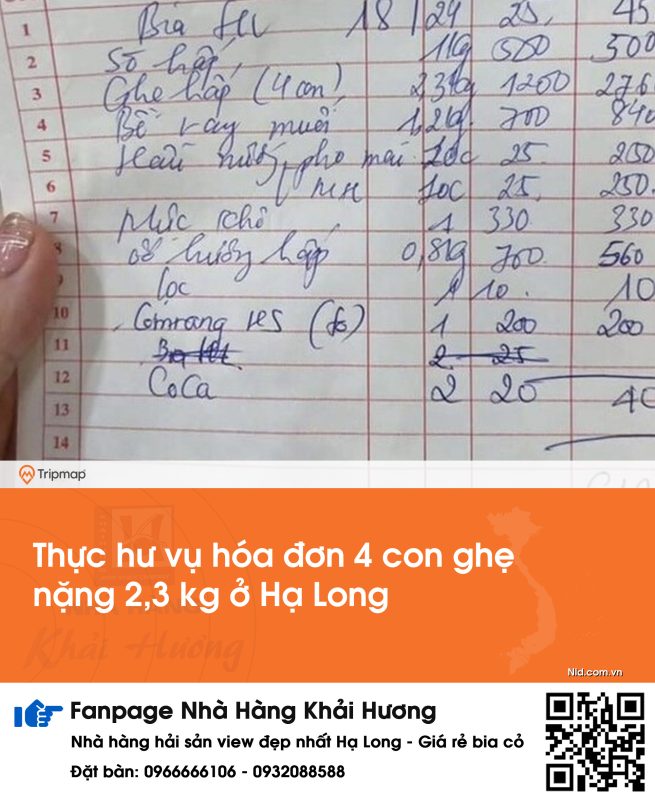 1 Bia HL 18 | 24 25. 45
2 Sò hấp, 1kg 500 500
3 Ghẹ hấp (4 con) 2,3kg 1200 276
4 Bề Bề rang muối, 1,2kg 700 840
5 Hàu nướng pho mai 10c 25. 250
6 MH 10c 25. 250.
7 Mực 1 330 330
8 ốc hương hấp 0,8kg 700 560
9 lọc 1 10. 10
10 Comrang HS (to) 1 200 200
11 2 25
12 CoCa 2 20 40
13
14
Tripmap
Thực hư vụ hóa đơn 4 con ghẹ
nặng 2,3 kg ở Hạ Long
Khải Hương
Nld.com.vn
Fanpage Nhà Hàng Khải Hương
Nhà hàng hải sản view đẹp nhất Hạ Long - Giá rẻ bia cỏ
Đặt bàn: 0966666106 - 0932088588